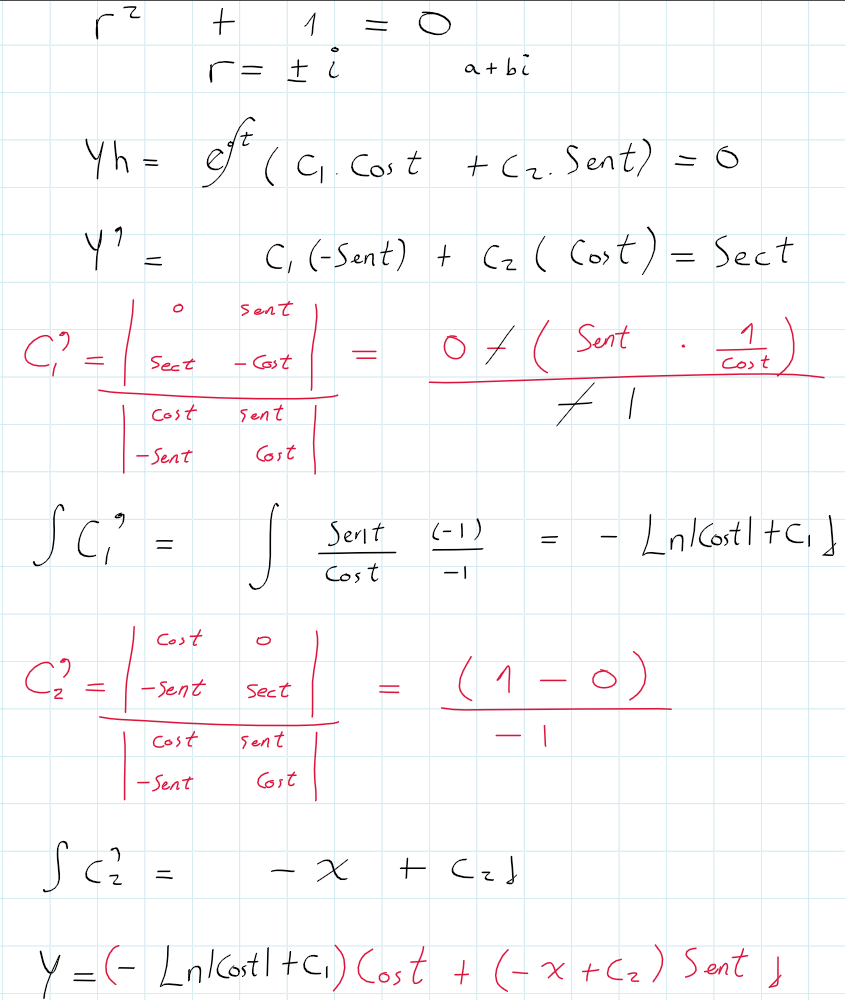 r² + 1 = 0
r = ± i a+bi
Yh = e^{0t} ( C₁. Cost + C₂. Sent) = 0
Y' = C₁ (-Sent) + C₂ ( Cost) = Sect
C₁' = | 0 sent | = 0 - ( Sent . 1/Cost )
| Sect - Cost | - 1
| Cost sent |
| -Sent Cost |
∫ C₁' = ∫ Sent/Cost (-1)/-1 = - Ln|Cost| + C₁ ⌋
C₂' = | Cost 0 | = ( 1 - 0 )
| -Sent Sect | - 1
| Cost sent |
| -Sent Cost |
∫ C₂' = - x + C₂ ⌋
Y = (- Ln|Cost| + C₁) Cost + (- x + C₂) Sent ⌋